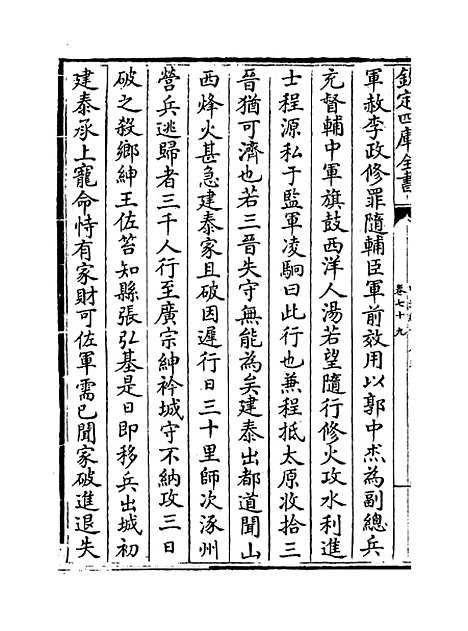 欽定四庫全書
卷七十九
軍赦李政修罪隨輔臣軍前效用以郭中杰為副總兵
充督輔中軍旗鼓西洋人湯若望隨行修火攻水利進
士程源私于監軍凌駉曰此行也兼程抵太原收拾三
晉猶可濟也若三晉失守無能為矣建泰出都道聞山
西烽火甚急建泰家且破因遲行日三十里師次涿州
營兵逃歸者三千人行至廣宗紳衿城守不納攻三日
破之殺鄉紳王佐笞知縣張弘基是日即移兵出城初
建泰承上寵命恃有家財可佐軍需已聞家破進退失